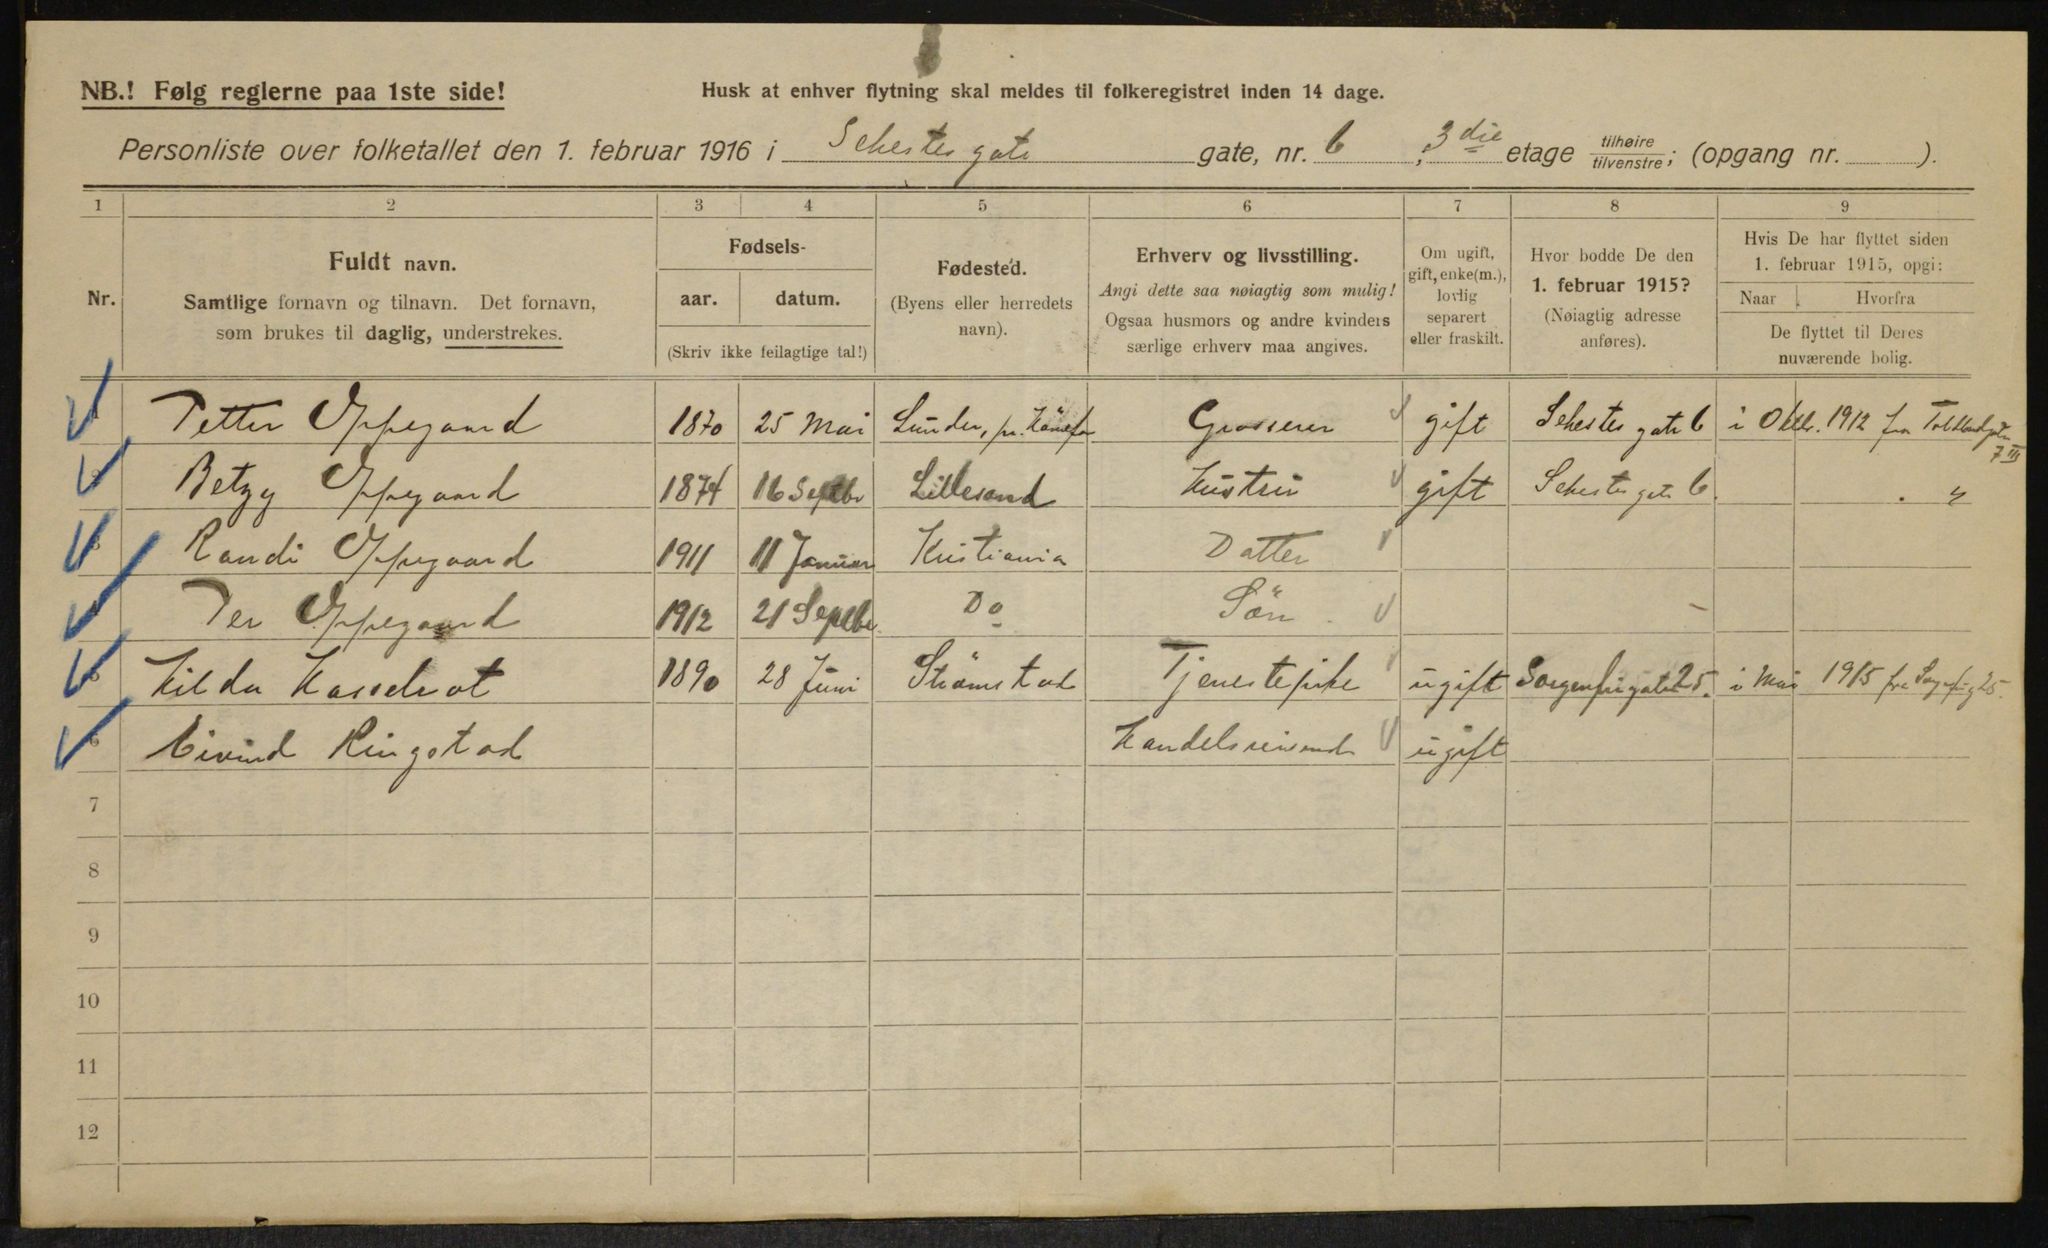 NB.! Følg reglerne paa 1ste side!
Husk at enhver flytning skal meldes til folkeregistret inden 14 dage.
Personliste over folketallet den 1. februar 1916 i Sehestes gate gate, nr. 6, 3die etage tilhøire tilvenstre; (opgang nr. ).
1 2 3 4 5 6 7 8 9
Nr.
Fuldt navn.
Samtlige fornavn og tilnavn. Det fornavn,
som brukes til daglig, understrekes.
Fødsels-
aar. datum.
(Skriv ikke feilagtige tal!)
Fødested.
(Byens eller herredets
navn).
Erhverv og livsstilling.
Angi dette saa nøiagtig som mulig!
Ogsaa husmors og andre kvinders
særlige erhverv maa angives.
Om ugift,
gift, enke(m.),
lovlig
separert
eller fraskilt.
Hvor bodde De den
1. februar 1915?
(Nøiagtig adresse
anføres).
Hvis De har flyttet siden
1. februar 1915, opgi:
Naar Hvorfra
De flyttet til Deres
nuværende bolig.
1 Petter Oppegaard 1870 25 Mai Lunder, pr. Hönefos Grosserer gift Sehestes gate 6 i Oktbr. 1912 fra 7 III
2 Betzy Oppegaard 1874 16 Septbr Lillesand Hustru gift Sehestes gate 6 . "
3 Randi Oppegaard 1911 11 Januar Kristiania Datter
4 Per Oppegaard 1912 21 Septbr. Do Sön -
5 Hilda Hasselrot 1890 28 Juni Strömstad Tjenestepike ugift Sorgenfrigaten 25. i Mai 1915 fra Sorgenfrig 25.
6 Eivind Ringstad Handelsreisende ugift
7
8
9
10
11
12